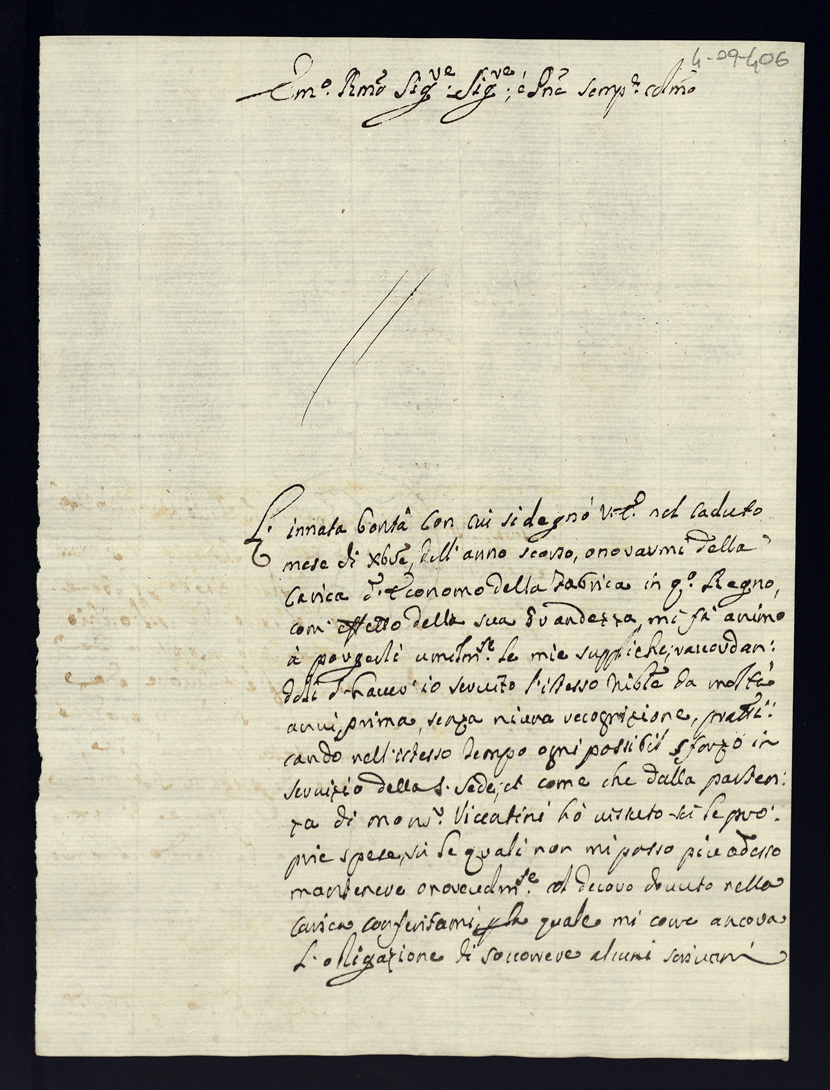 4-09-406
Em.º Rmo Sig.re Sig.re, e Pne semp.e colmo
L'innata bontà con cui si degnò V.E. nel caduto
mese di Xbre, dell'anno scorso, onorarmi della
Carica d'Economo della Fabrica in q.º Regno,
com' effetto della sua Grandezza, mi fà animo
à porgerli umilm.te le mie suppliche, raccordan:
doli d'haver io servito l'istesso Nible da molti
anni prima, senza niuna recognizione, pratti:
cando nell'istesso tempo ogni possibil sforzo in
servizio della S. Sede, et come che dalla parten:
za di mons.r Viccatini hò vissuto sù le pro:
prie spese, sù le quali non mi posso più adesso
mantenere onorevolm.te al decoro dovuto nella
carica conferitami, per la quale mi corre ancora
l'obligazione di soccorrere alcuni scrivani